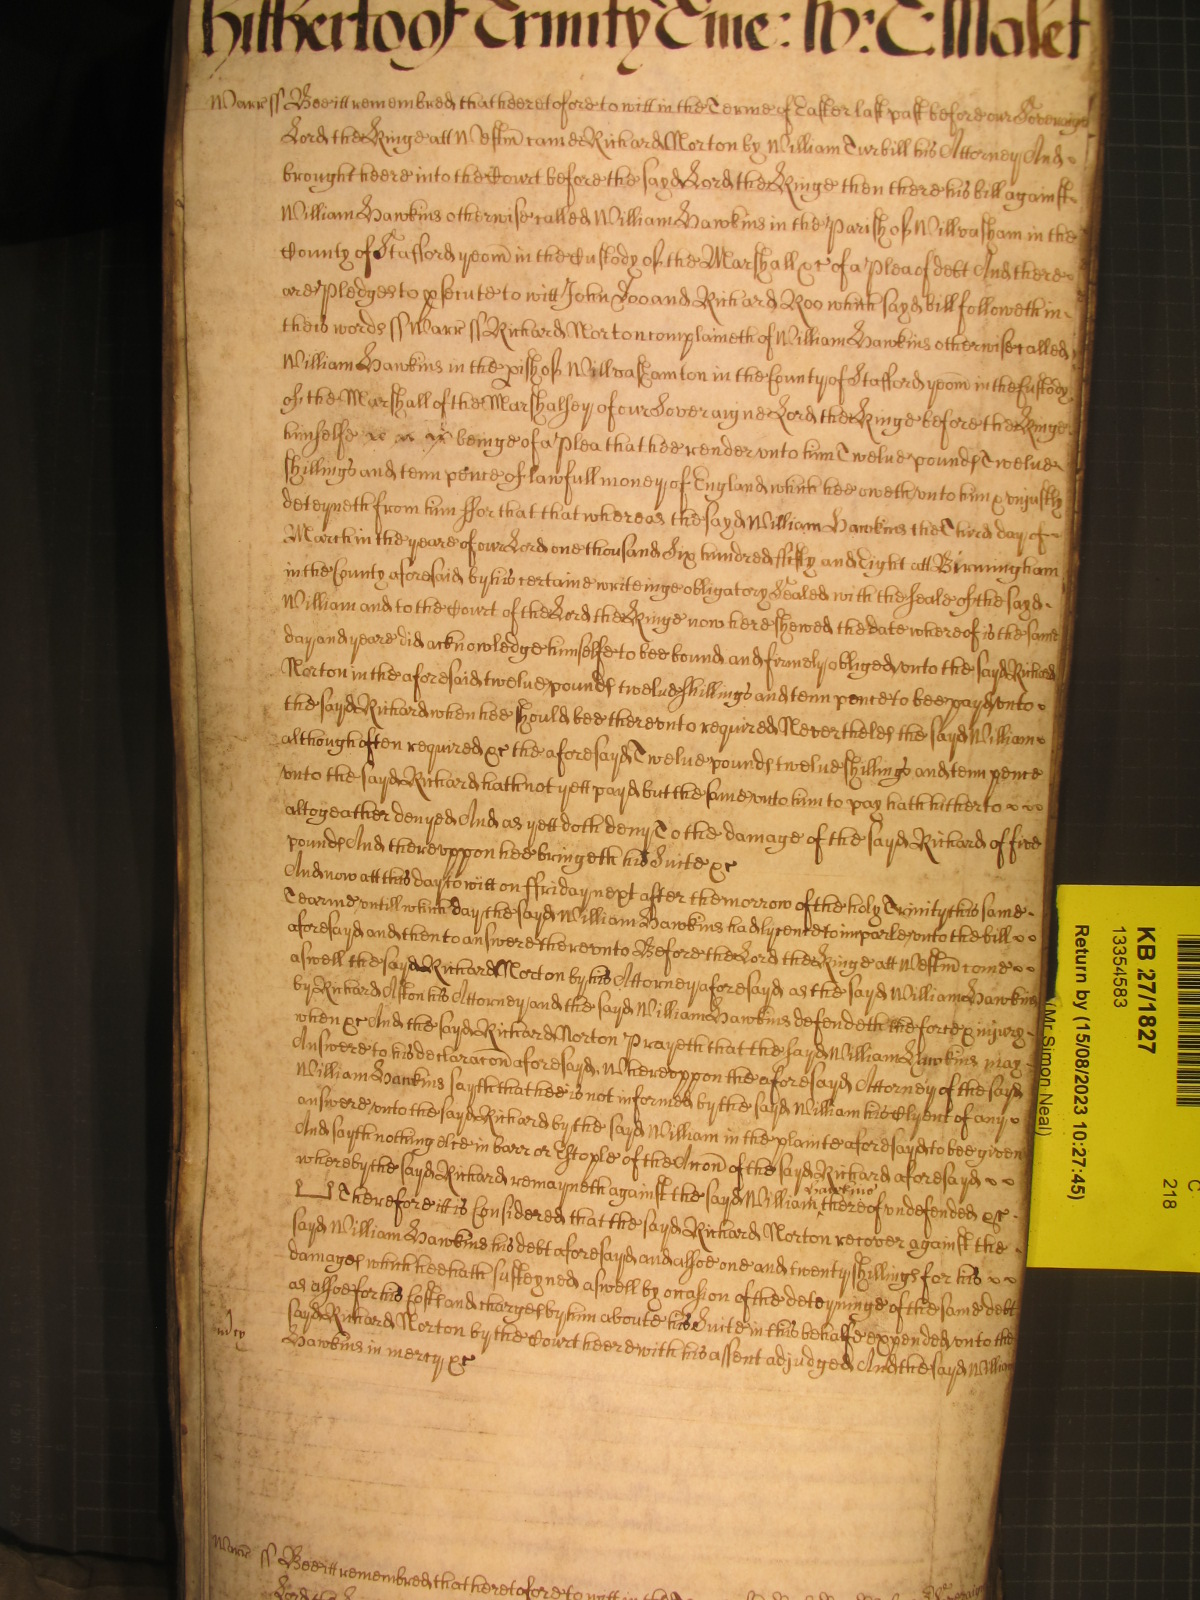 hitherto of Trinity Tme: W: T: Malet
Warr ss Bee itt remembred that heeretofore to witt in the Terme of Easter last past before our Soveraigne
Lord the Kinge att Westm̃ came Richard Norton by William Turbill his Attorney And
brought heere into the Court before the sayd Lord the Kinge then there his bill against
William Hawkins otherwise called William Hawkins in the Parish of Willvasham in the
County of Stafford yeom̃ in the Custody of the Marshall &c of a Plea of debt And there
are Pledges to ꝓsecute to witt John Doo and Richard Roo which sayd bill followeth in
theis words ss Warr ss Richard Norton complaineth of William Hawkins otherwise called
William Hawkins in the ꝑish of Willvashamton in the County of Stafford yeom̃ in the Custody
of the Marshall of the Marshalsey of our Soveraigne Lord the Kinge before the Kinge
himselfe beinge of a Plea that hee render unto him Twelve pounds Twelve
shillings and tenn pence of lawfull money of England which hee oweth unto him & unjustly
deteyneth from him ffor that that whereas the sayd William Hawkins the Third day of
March in the yeare of our Lord one thousand Six hundred fifty and Eight att Birmingham
in the County aforesaid by his certaine writeinge obligatory Sealed with the seale of the sayd
William and to the Court of the Lord the Kinge now here shewed the date whereof is the same
day and yeare did acknowledge himselfe to bee bound and firmely obliged unto the sayd Richard
Norton in the aforesaid twelve pounds twelve shillings and tenn pence to bee payd unto
the sayd Richard when hee should bee thereunto required Nevertheles the sayd William
although often required &c the aforesayd Twelve pounds twelve shillings and tenn pence
unto the sayd Richard hath not yett payd but the same unto him to pay hath hitherto
altogeather denyed And as yett doth deny To the damage of the sayd Richard of five
pounds And thereuppon hee bringeth his Suite &c
And now att this day to witt on ffriday next after the morrow of the holy Trinity this same
Tearme untill which day the sayd William Hawkins had lycence to imparle unto the bill
aforesayd and then to answere thereunto Before the Lord the Kinge att Westm̃ come
aswell the sayd Richard Norton by his Attorney aforesayd as the sayd William Hawkins
by Richard Aston his Attorney and the sayd William Hawkins defendeth the force & injury
when &c And the sayd Richard Norton Prayeth that the sayd William Hawkins may
Answere to his declaracõn aforesayd Whereuppon the aforesayd Attorney of the sayd
William Hawkins sayth that hee is not informed by the sayd William his Clyent of any
answere unto the sayd Richard by the sayd William in the plainte aforesayd to bee given
And sayth nothing else in barr or Estople of the Accõn of the sayd Richard aforesayd
whereby the sayd Richard remayneth against the sayd William Hawkins thereof undefended &c
Therefore itt is Considered that the sayd Richard Norton recover against the
sayd William Hawkins his debt aforesayd and alsoe one and twenty shillings for his
damages which hee hath susteyned aswell by occasion of the deteyninge of the same debt
as alsoe for his Costs and charges by him aboute his Suite in this behalfe expended unto the
sayd Richard Norton by the Court heere with his assent adjudged And the sayd William
Hawkins in mercy &c
Warr ss Bee itt remembred that heretofore to witt in the
KB 27/1827
13354583
Return by (15/08/2023 10:27:45)
(Mr Simon Neal)
C
218